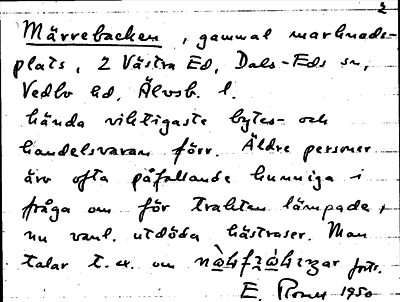 2
Märrebacken, gammal marknads-
plats, i Västra Ed, Dals-Eds sn,
Vedbo hd, Älvsb. l.
hända viktigaste bytes- och
handelsvaran förr. Äldre personer
äro ofta påfallande kunniga i
fråga om för trakten lämpade,
nu vanl. utdöda hästraser. Man
talar t. ex. om forts.
E. 1950